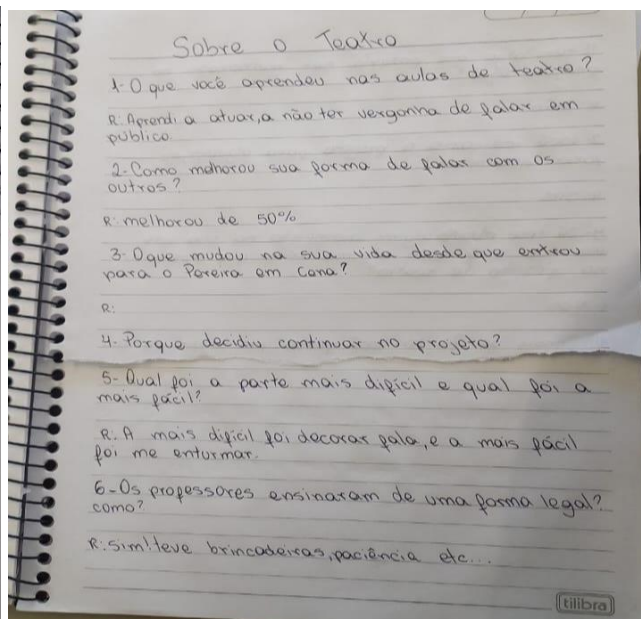 Sobre o Teatro
1- O que você aprendeu nas aulas de teatro?
R: Aprendi a atuar, a não ter vergonha de falar em
público.
2- Como melhorou sua forma de falar com os
outros?
R: melhorou de 50%
3- Oque mudou na sua vida desde que entrou
para o Pereira em Cena?
R:
4- Porque decidiu continuar no projeto?
5- Qual foi a parte mais difícil e qual foi a
mais fácil?
R: A mais difícil foi decorar fala, e a mais fácil
foi me enturmar.
6- Os professores ensinaram de uma forma legal?
como?
R: Sim! teve brincadeiras, paciência etc...
tilibra